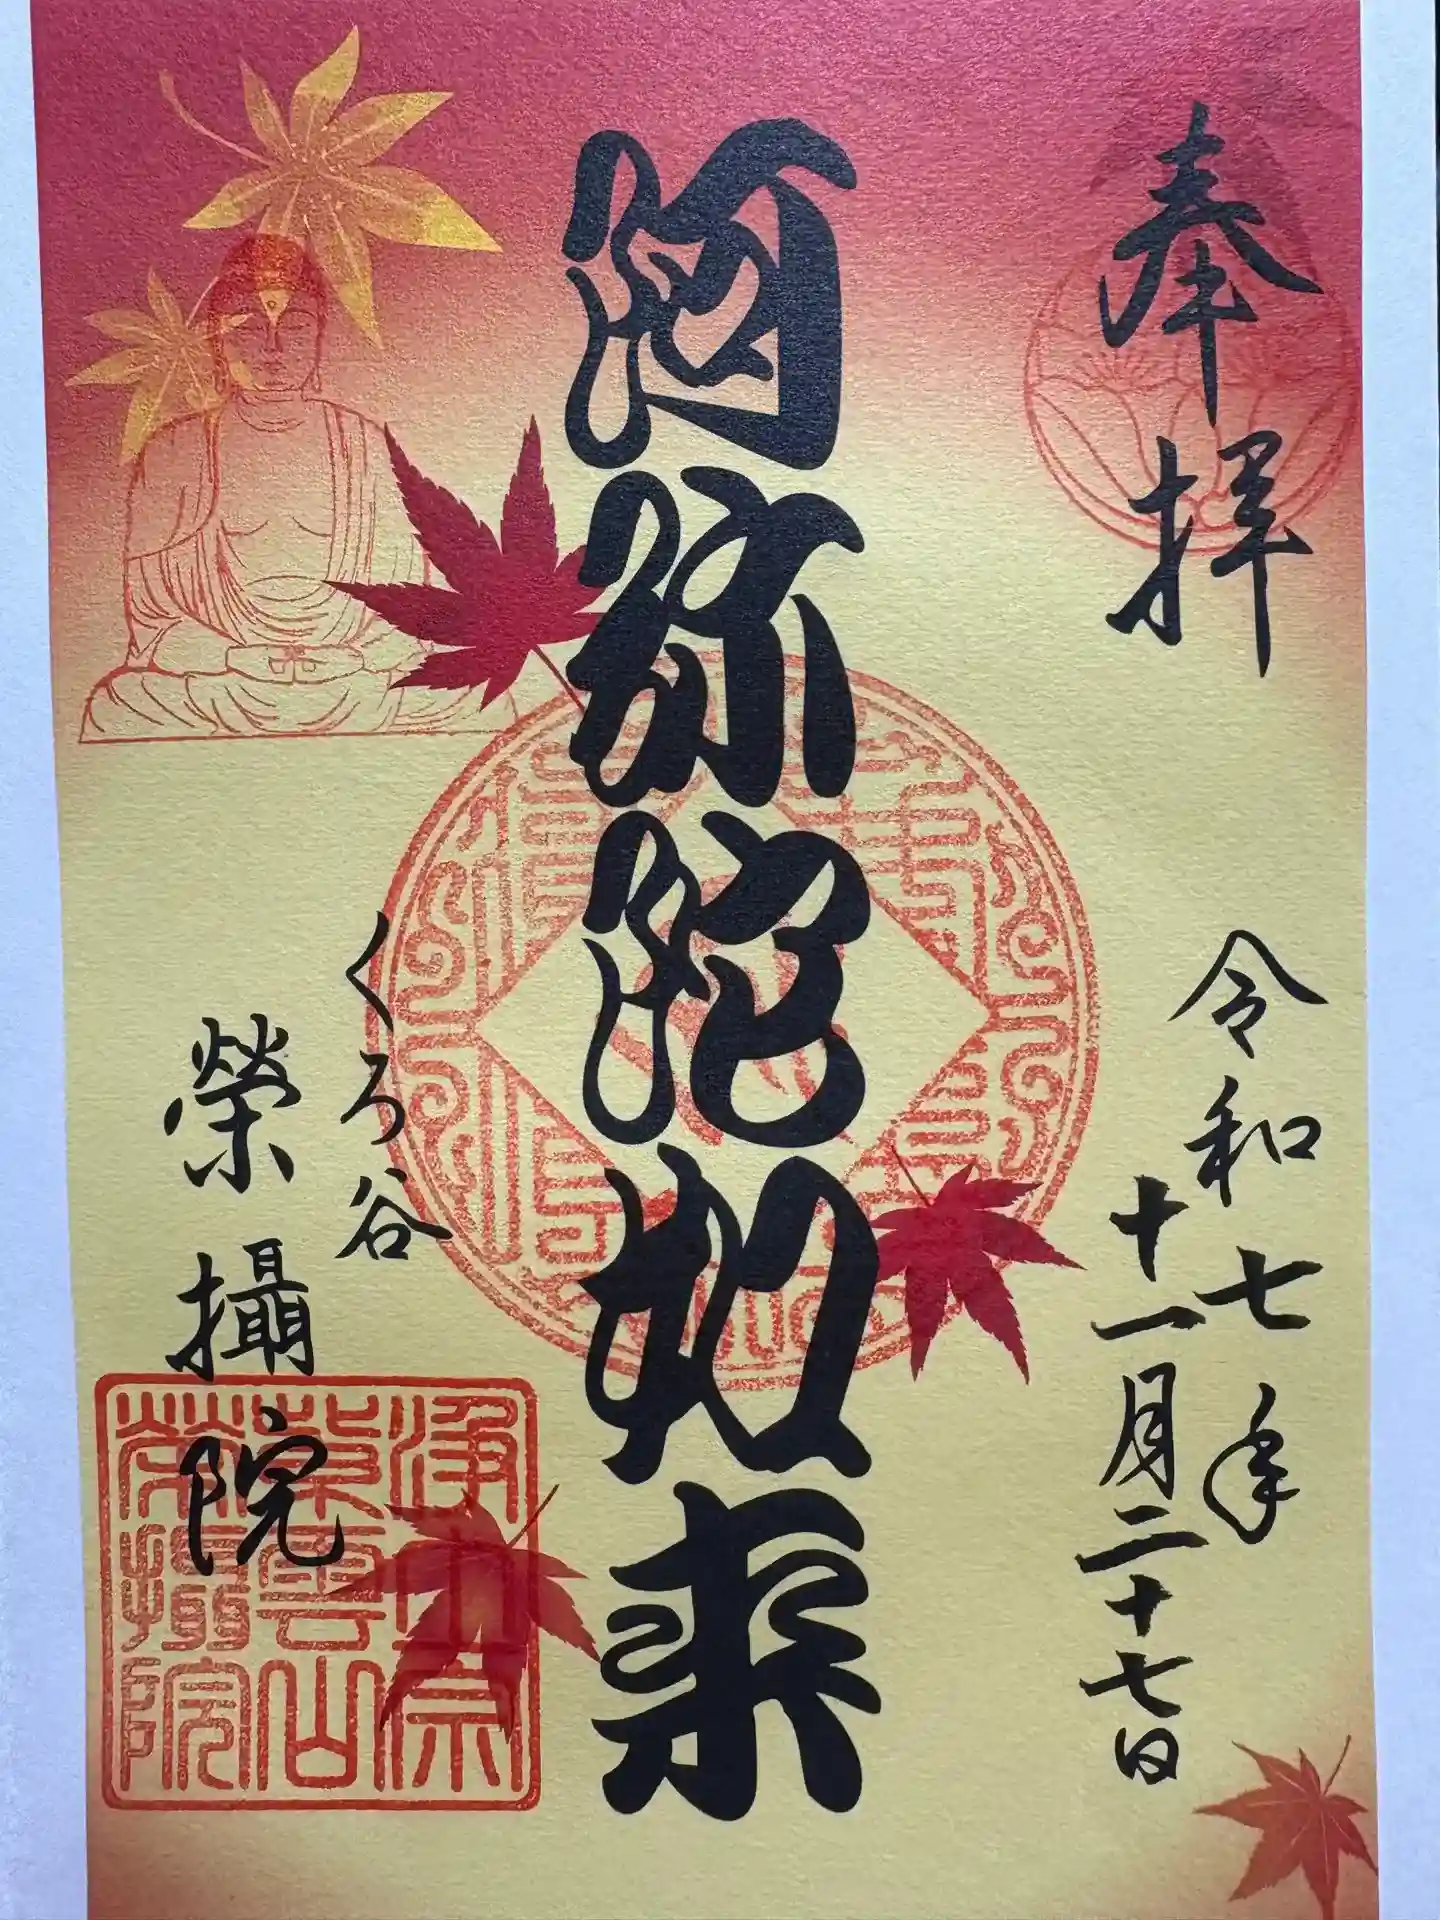 奉拝
令和七年
十一月二十七日
阿弥陀如来
くろ谷
榮攝院
浄土宗
紫雲山
栄摂院